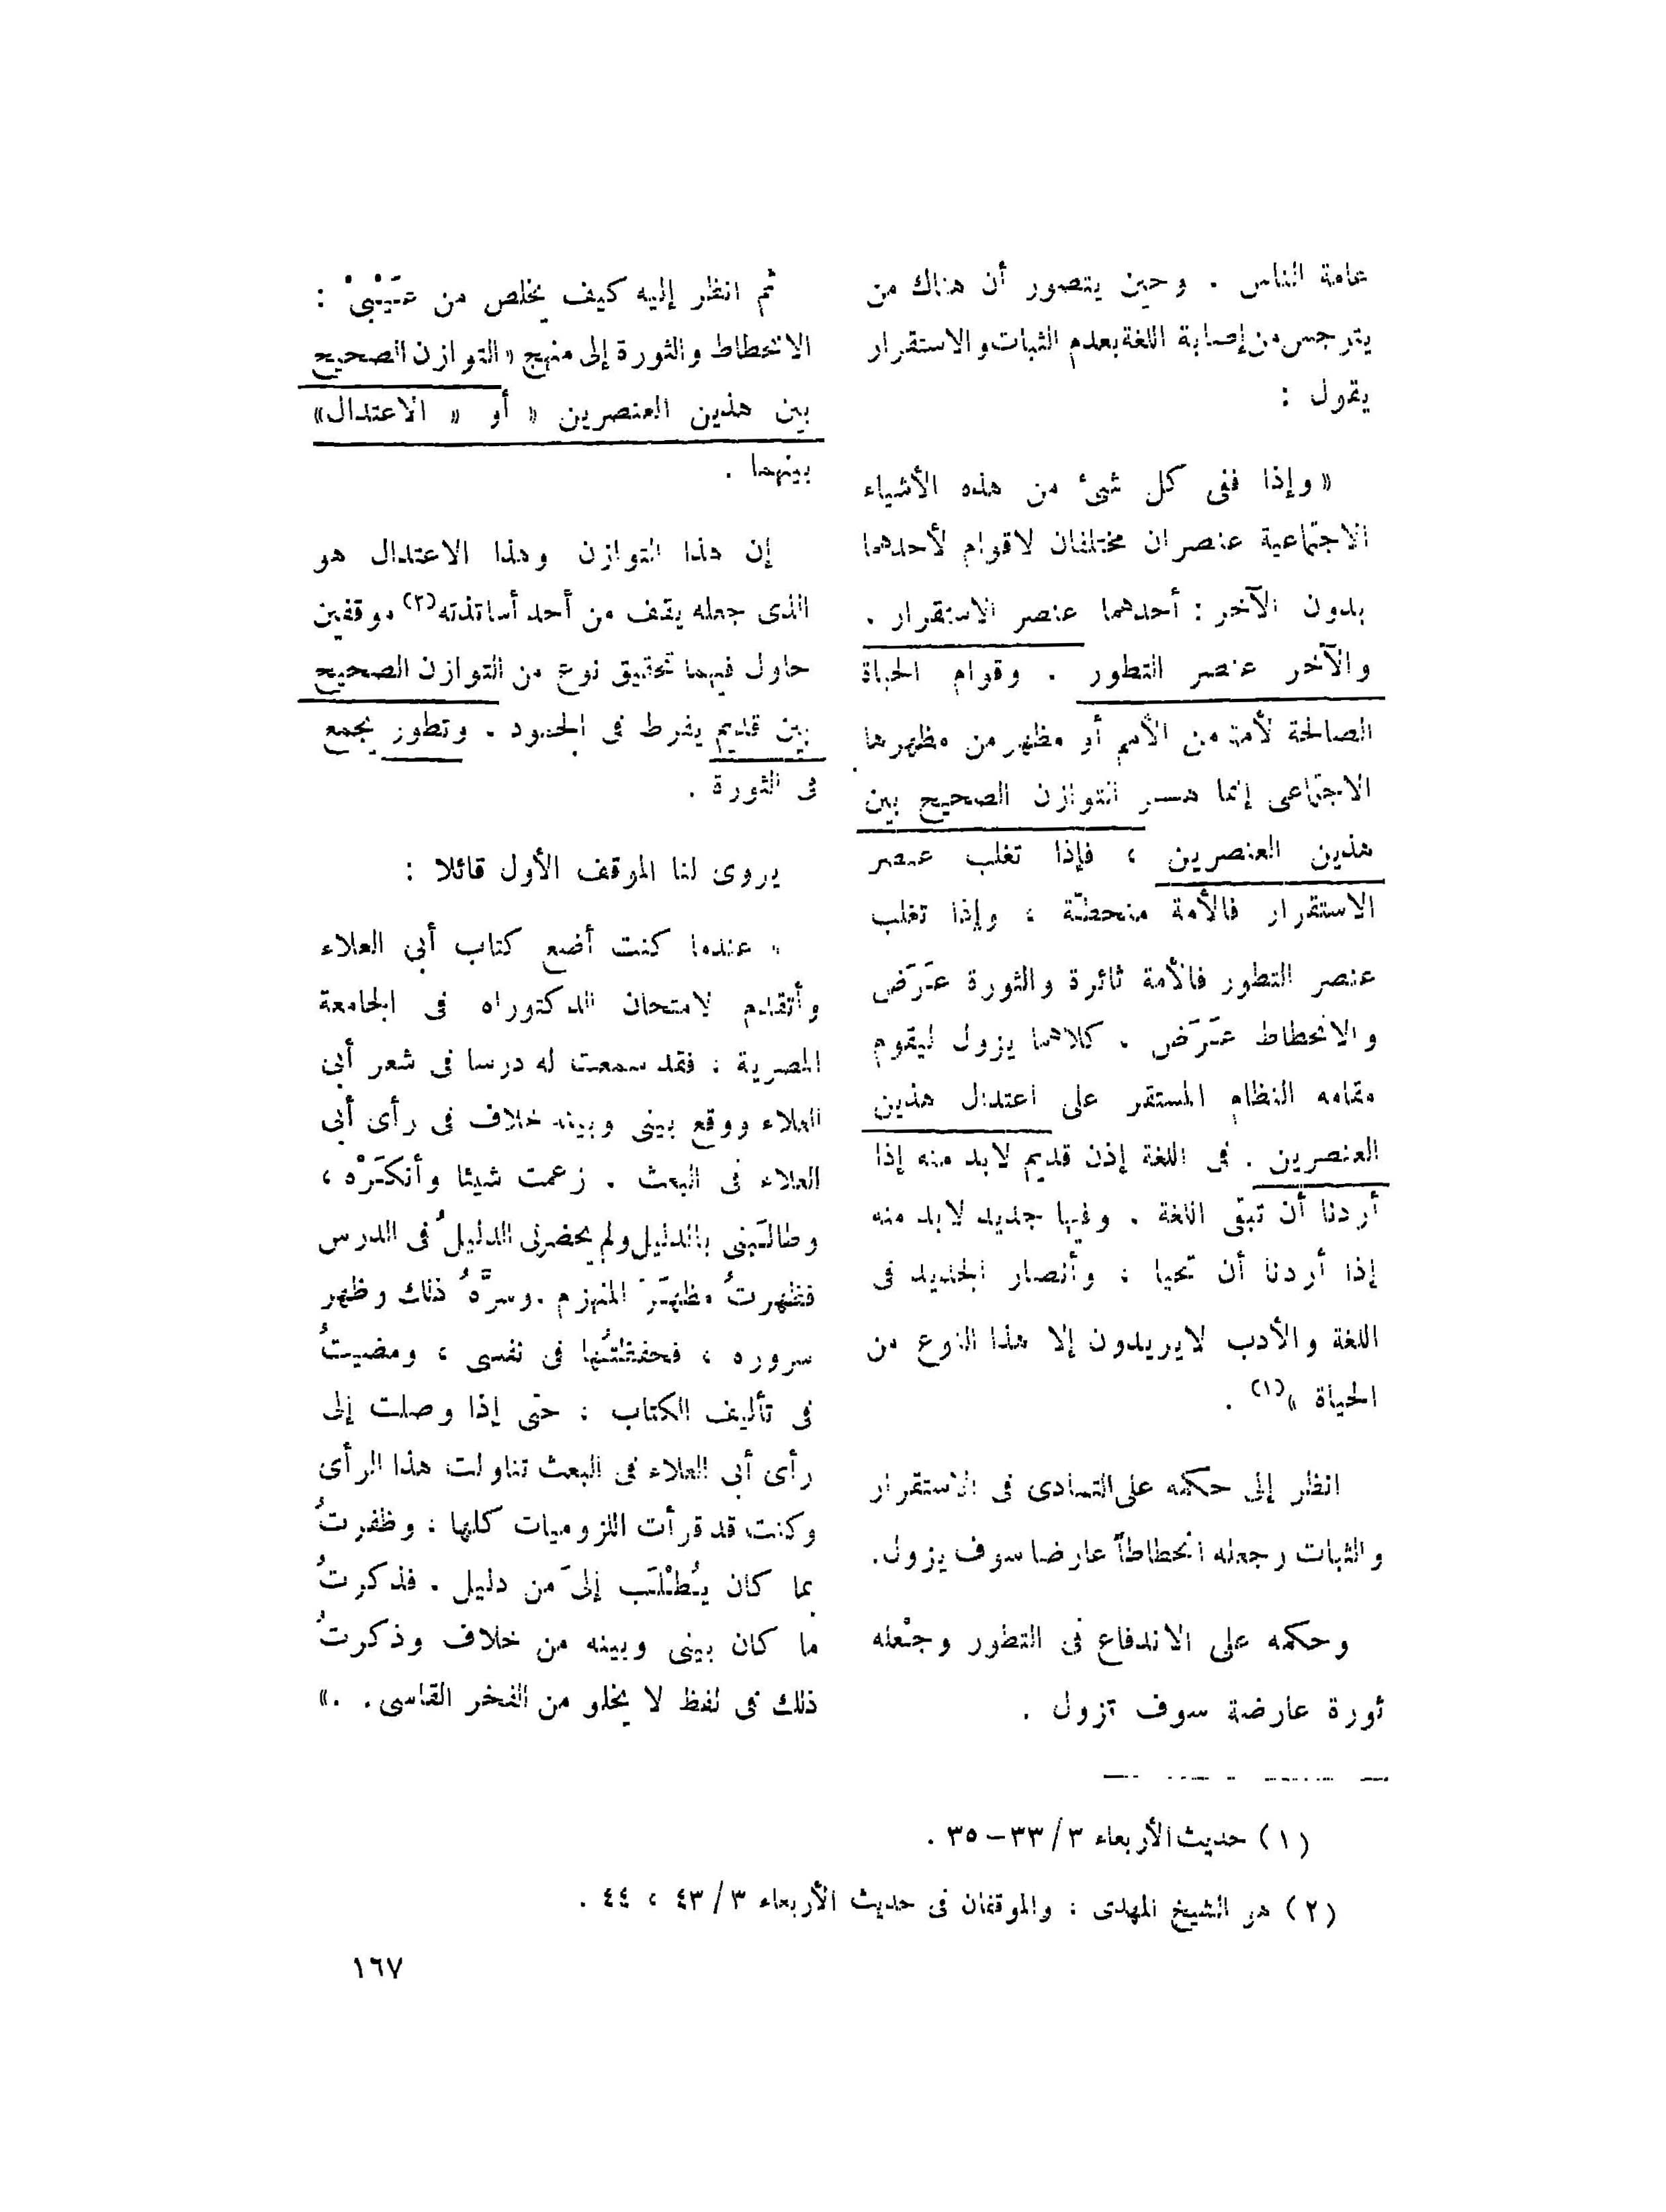 عامة الناس . وحين يتصور أن هناك من
يترجس من إصابة اللغة بعدم الثبات والاستقرار
يقول :
« وإذا ففى كل شىء من هذه الأشياء
الاجتماعية عنصران مختلفان لاقوام لأحدهما
بدون الآخر : أحدهما عنصر الاستقرار .
والآخر عنصر التطور . وقوام الحياة
الصالحة لأمة من الأمم أو مظهر من مظهرها
الاجتماعى إنما هـــو التوازن الصحيح بين
هذين العنصرين ، فإذا تغلب عنصر
الاستقرار فالأمة منحطّة ، وإذا تغلب
عنصر التطور فالأمة ثائرة والثورة عَرَض
والانحطاط عَرَض . كلاهما يزول ليقوم
مقامه النظام المستقر على اعتدال هذين
العنصرين . فى اللغة إذن قديم لابد منه إذا
أردنا أن تبقى اللغة . وفيها جديد لابد منه
إذا أردنا أن تحيا ، وأنصار الجديد فى
اللغة والأدب لايريدون إلا هذا النوع من
الحياة »(١) .
انظر إلى حكمه على التمادى فى الاستقرار
والثبات وجعله انحطاطاً عارضا سوف يزول.
وحكمه على الاندفاع فى التطور وجعْله
ثورة عارضة سوف تزول .
ثم انظر إليه كيف يخلص من عَيْبىْ :
الانحطاط والثورة إلى منهج « التوازن الصحيح
بين هذين العنصرين « أو « الاعتدال»
بينهما .
إن هذا التوازن وهذا الاعتدال هو
الذى جعله يقف من أحد أساتذته(٢) موقفين
حاول فيهما تحقيق نوع من التوازن الصحيح
بين قديم يفرط فى الجمود . وتطور يجمع
فى الثورة .
يروى لنا الموقف الأول قائلا :
« عندما كنت أضع كتاب أبى العلاء
وأتقدم لامتحان الدكتوراه فى الجامعة
المصرية ، فقد سمعت له درسا فى شعر أبى
العلاء ووقع بينى وبينه خلاف فى رأى أبى
العلاء فى البعث . زعمت شيئا وأنكَرْه ،
وطالَبنى بالدليل ولم يحضرنى الدليلُ فى الدرس
فظهرتُ مظهَرَ المنهزم . وسرَّهُ ذلك وظهر
سروره ، فحفظتُها فى نفسى ، ومضيتُ
فى تأليف الكتاب ، حتى إذا وصلت إلى
رأى أبى العلاء فى البعث تناولت هذا الرأى
وكنت قد قرأت اللزوميات كلها ، وظفرتُ
بما كان يُطْلَب إلىَ من دليل . فذكرتُ
ما كان بينى وبينه من خلاف وذكرتُ
ذلك فى لفظ لا يخلو من الفخر القاسى . .»
(١) حديث الأربعاء ٣/ ٣٣–٣٥ .
(٢) هو الشيخ المهدى ، والموقفان فى حديث الأربعاء ٣/ ٤٣ ، ٤٤ .
١٦٧